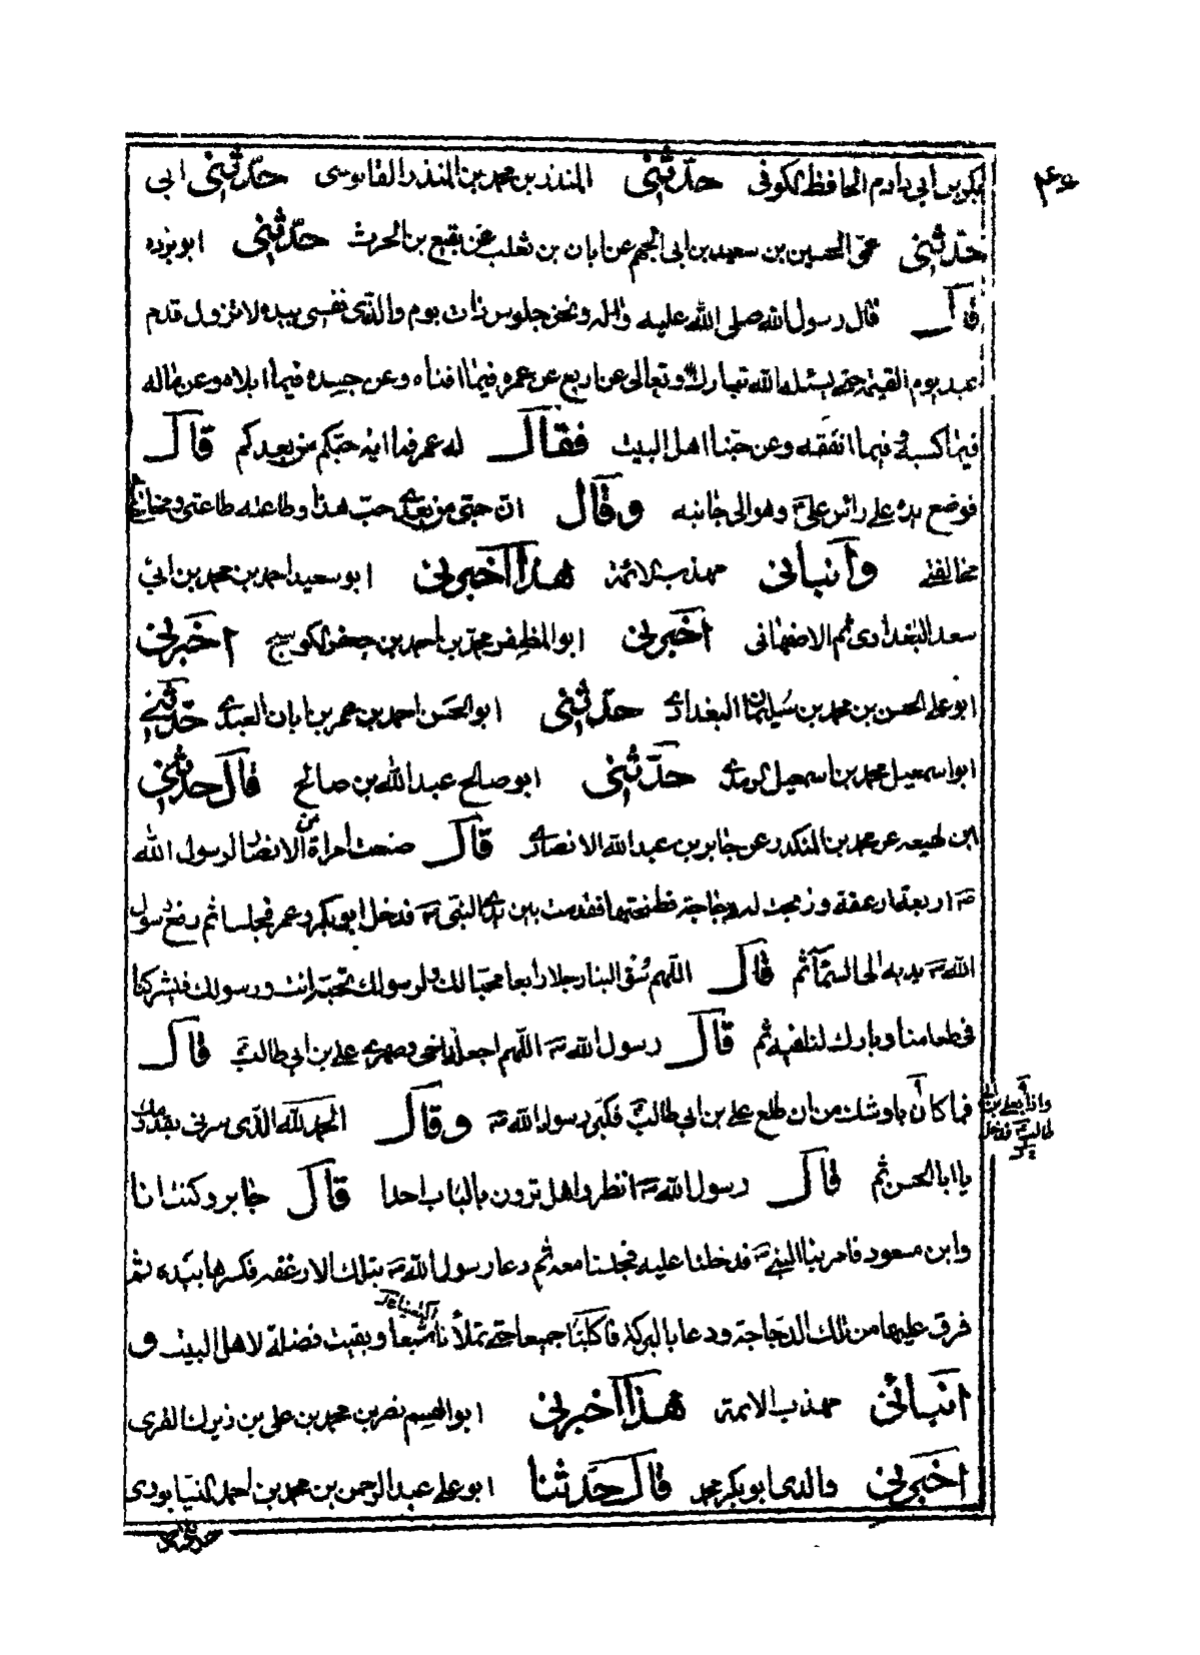 بكر بن ابي دارم الحافظ الكوفي حدّثني المنذر بن محمد بن المنذر القابوسي حدّثني ابي
حدّثني عمّي الحسين بن سعيد بن ابي الجهم عن ابان بن تغلب عن نفيع بن الحرث حدّثني ابو برده
قال قال رسول الله صلى الله عليه واله ونحن جلوس ذات يوم والذّي نفسي بيده لا تزول قدم
عبد يوم القيمة حتى يسئله الله تبارك وتعالى عن اربع عن عمره فيما افناه وعن جسده فيما ابلاه وعن ماله
فيما كسبه وفيما انفقه وعن حبّنا اهل البيت فقال له عمر فما اية حبّكم من بعدكم قال
فوضع يده على راس علي ع وهو الى جانبه وقال ان حبّي من بعدي حبّ هذا وطاعته طاعتي ومخالفته
مخالفتي وانباني مهذب الائمة هذا اخبرني ابو سعيد احمد بن محمد بن ابي
سعد البغدادى ثم الاصفهانى اخبرني ابو المظفر محمد بن احمد بن جعفر الكوسج اخبرني
ابو على الحسن بن محمد بن سليمان البغدادي حدّثني ابو الحسن احمد بن محمد بن ابان العبدي حدّثني
ابو اسمعيل محمد بن اسمعيل الترمذي حدّثني ابو صالح عبد الله بن صالح قال حدثني
ابن لهيعه عن محمد بن المنكدر عن جابر بن عبد الله الانصاري قال صنعت امراة من الانصار لرسول الله
ص اربعة ارغفة وذبحت له دجاجة فطبختها فقدمت بين يدي النبّي ص فدخل ابو بكر وعمر فجلسا ثم رفع رسول
الله ص يديه الى السّماء ثم قال اللّهم سُق الينا رجلا رابعا محبّا لك ولرسولك تحبّه انت ورسولك فيشركنا
في طعامنا وبارك لنا فيه ثم قال رسول الله ص اللّهم اجعله اخي وصهري علي بن ابي طالب ع قال
فما كان باوشك من ان طلع علي بن ابي طالب ع فكبّر رسول الله ص وقال الحمد لله الذّي سرني بقدومك
واذا بعلي بن ابي
طالب ع قد دخل
يا ابا الحسن ثم قال رسول الله ص انظروا هل ترون بالباب احدا قال جابر وكنت انا
وابن مسعود فامر بنا النبي ص فدخلنا عليه فجلسنا معه ثم دعا رسول الله ص بتلك الارغفه فكسرها بيده ثم
فرق عليها من تلك الدّجاجة ودعا بالبركة فاكلنا جميعا حتى تملأنا شبعا وبقيت فضلة لاهل البيت و
انبائي مهذب الائمة هذا اخبرني ابو القسم نصر بن محمد بن على بن زيرك المقرى
اخبرني والدى ابو بكر محمد قال حدّثنا ابو علي عبد الرحمن بن محمد بن احمد النيسابورى